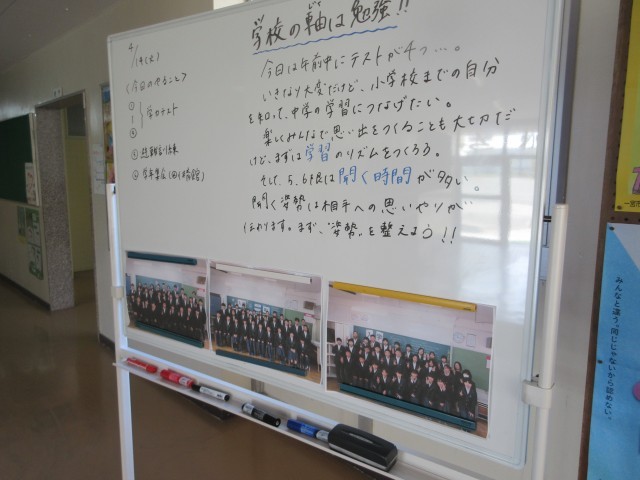 学校の軸は勉強!!
じく
4/14(火)
今日は午前中にテストが4つ…。
いきなり大変だけど、小学校までの自分
を知って、中学の学習につなげたい。
楽しくみんなで思い出をつくることも大切だ
けど、まずは学習のリズムをつくろう。
そして、5,6限は聞く時間が多い。
聞く姿勢は相手への思いやりが
伝わります。まず、"姿勢"を整えよう!!
〈今日のやること〉
①
学力テスト
④
⑤避難訓練
⑥学年集会
みんなと違う。同じじゃないから認めない。
一宮市